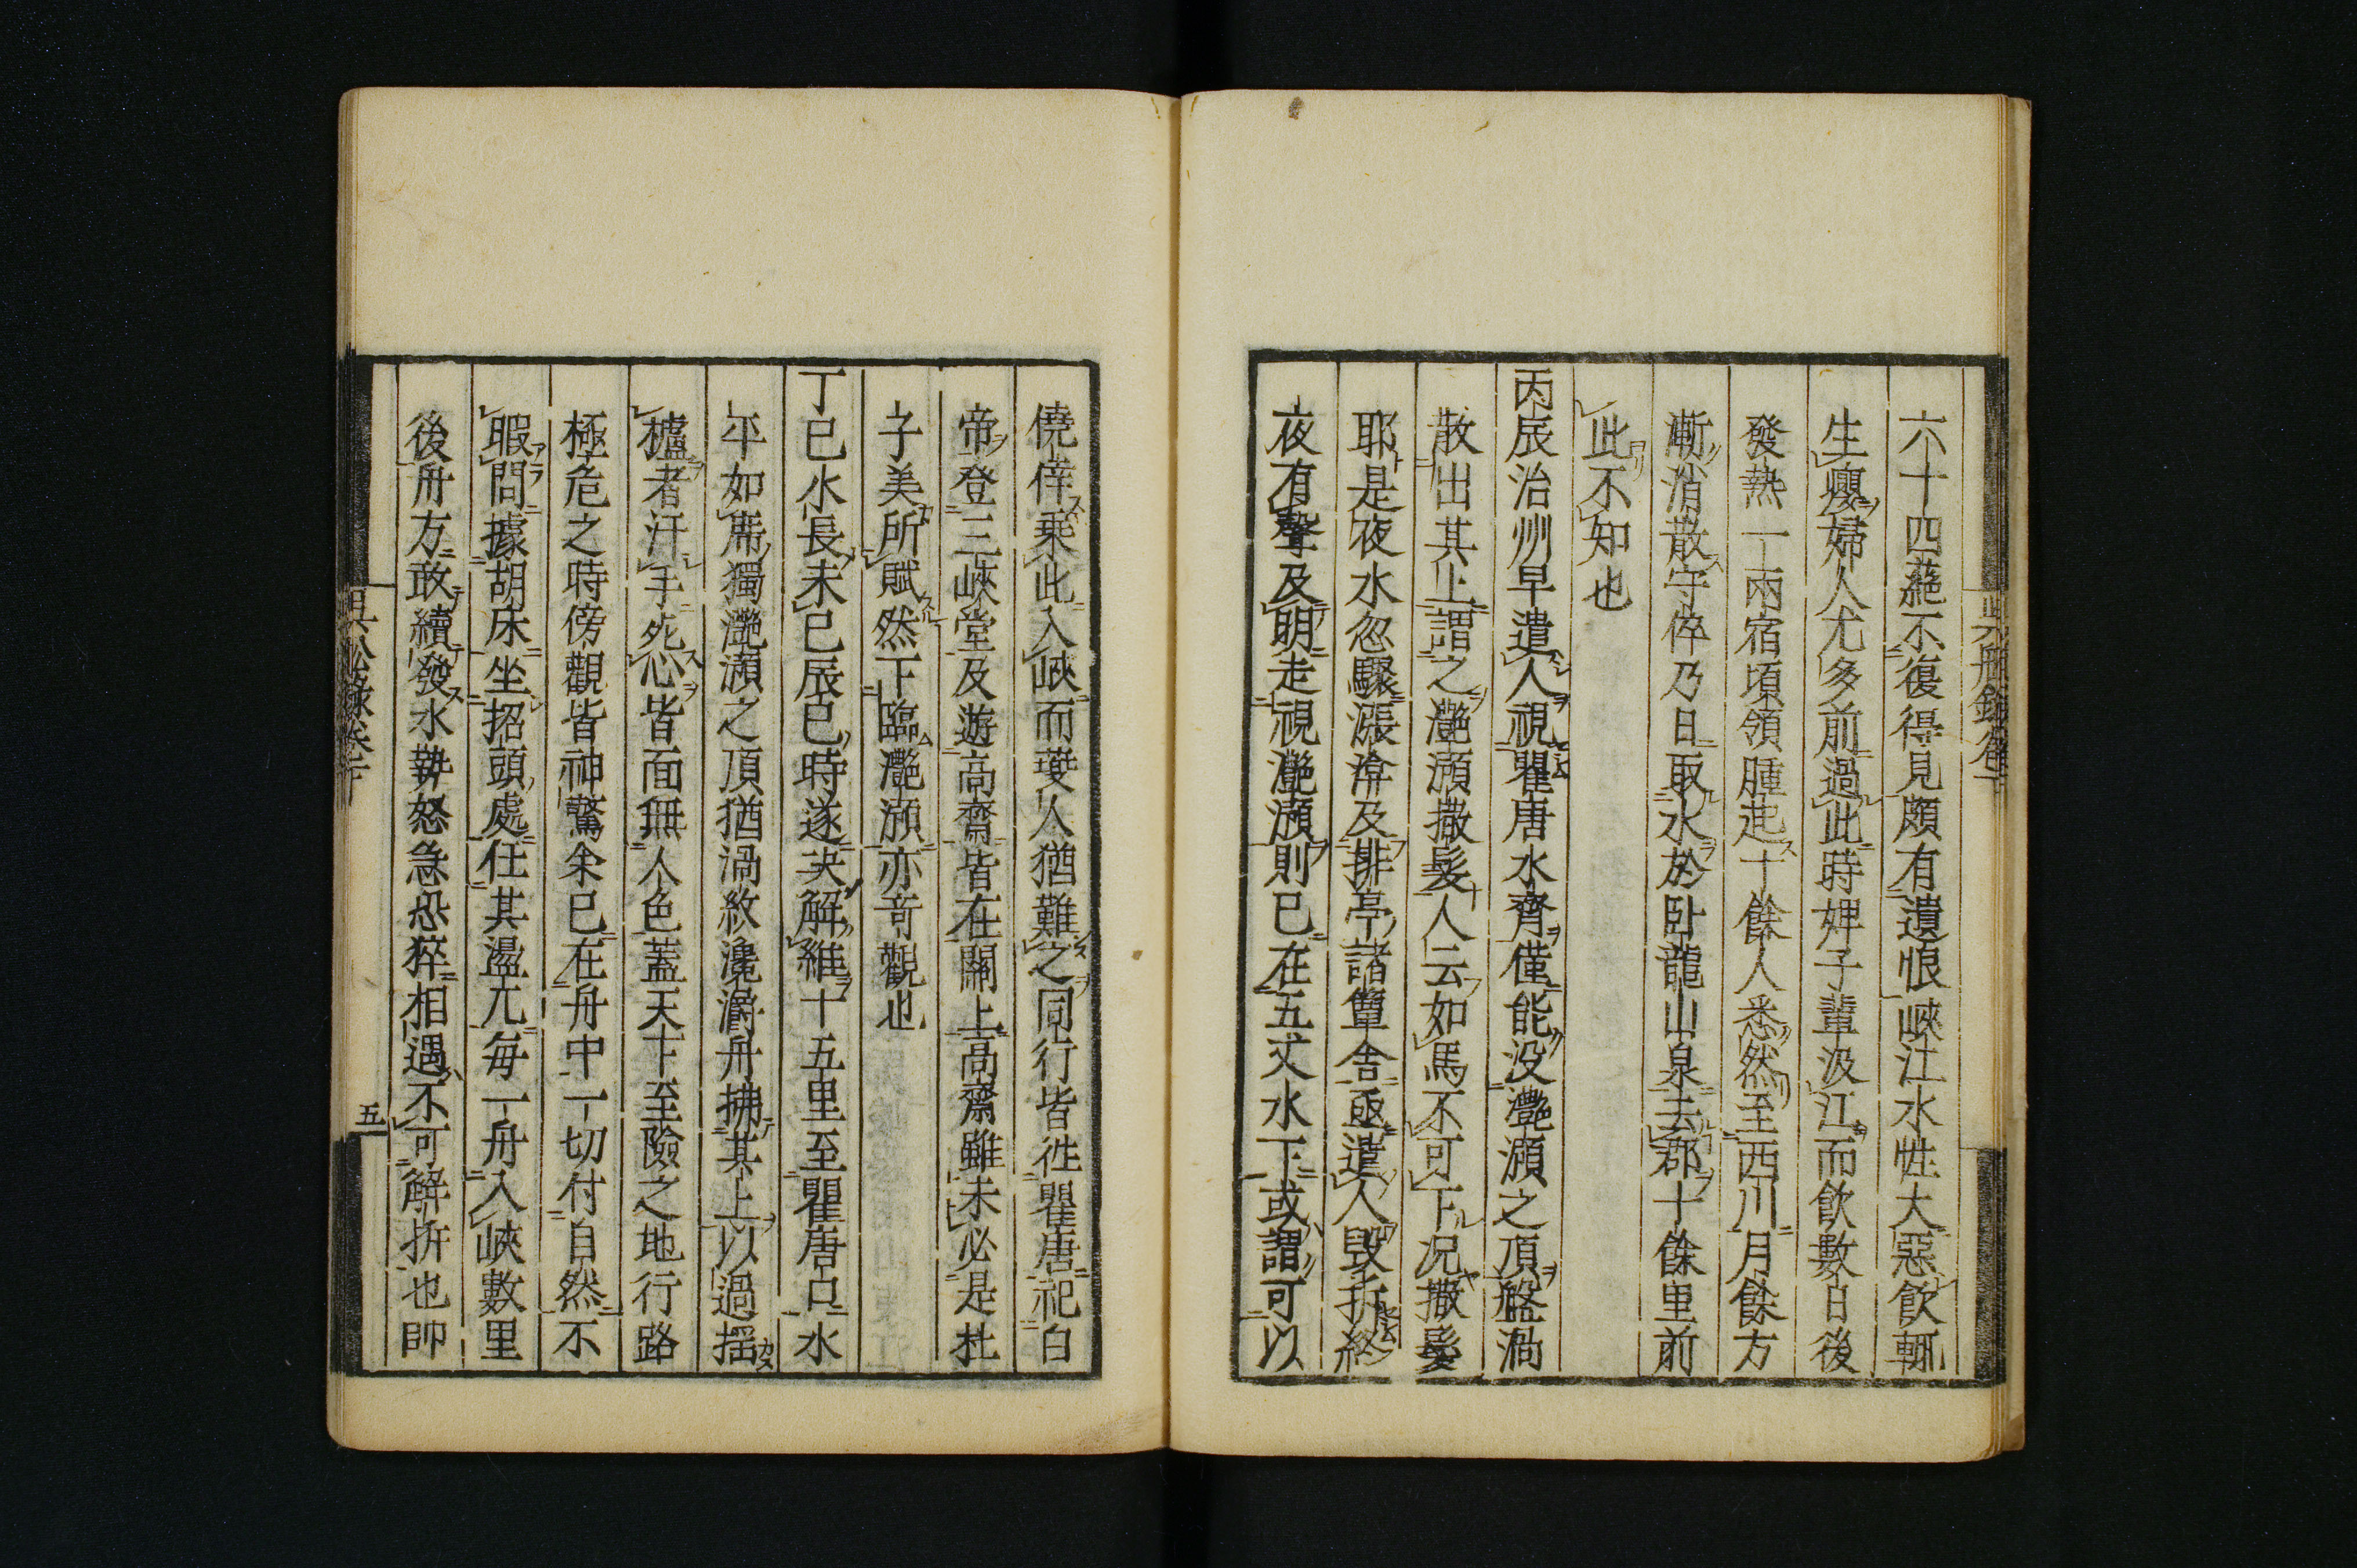 六十四蕝不復得見頗有遺恨峽江水性大惡飮輒
生癭婦人尤多前過此時婢子輩汲江而飮數日後
發熱一兩宿項領腫起十餘人悉然至西川月餘方
漸消散守倅乃日取水於臥龍山泉去郡十餘里前
此不知也
丙辰治州早遣人視瞿唐水齊僅能没灔澦之頂盤渦
散出其上謂之灔澦撒髮人云如馬不可下况撒髮
耶是夜水忽驟漲渰及排亭諸簟舍亟遣人毁拆終
夜有聲及明走視灔澦則已在五丈水下或謂可以
僥倖乗此入峽而䕫人猶難之同行皆徃瞿唐祀白
帝登三峽堂及遊高齋皆在關上高齋雖未必是杜
子美所賦然下臨灔澦亦奇觀也
丁巳水長未已辰巳時遂决解維十五里至瞿唐口水
平如席獨灔澦之頂猶渦紋瀺灂舟拂其上以過揺
櫨者汗手死心皆面無人色蓋天下至險之地行路
極危之時傍觀皆神驚余已在舟中一切付自然不
暇問據胡床坐招頭處任其盪兀毎一舟入峽數里
後舟方敢續發水勢怒急恐猝相遇不可解拆也即
五